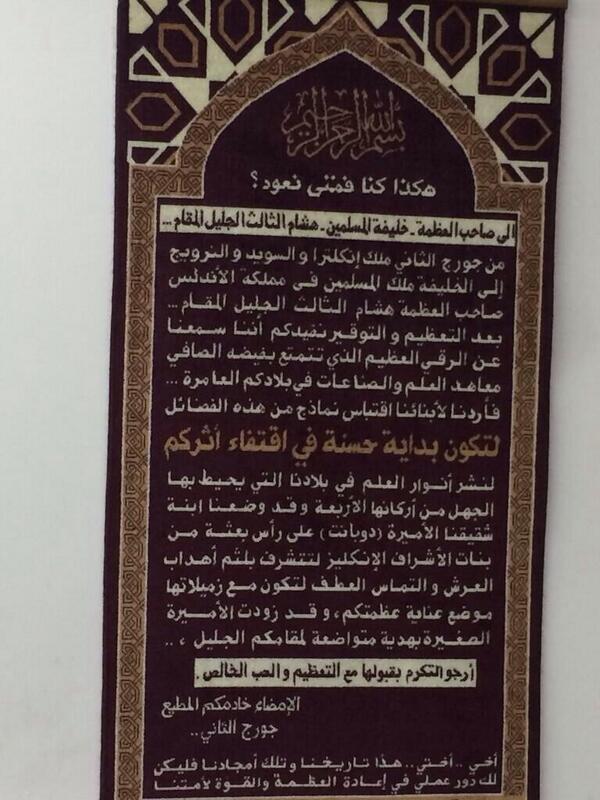 بسم الله الرحمن الرحيم
هكذا كنا فمتى نعود ؟
الى صاحب العظمة ـ خليفة المسلمين ـ هشام الثالث الجليل المقام ...
من جورج الثاني ملك إنكلترا و السويد و النرويج
إلى الخليفة ملك المسلمين في مملكة الأندلس
صاحب العظمة هشام الثالث الجليل المقام ...
بعد التعظيم و التوقير نفيدكم أننا سمعنا
عن الرقي العظيم الذي تتمتع بفيضه الصافي
معاهد العلم والصناعات في بلادكم العامرة ...
فأردنا لأبنائنا اقتباس نماذج من هذه الفضائل
لتكون بداية حسنة في اقتفاء أثركم
لنشر أنوار العلم في بلادنا التي يحيط بها
الجهل من أركانها الأربعة و قد وضعنا ابنة
شقيقنا الأميرة (دوبانت) على رأس بعثة من
بنات الأشراف الإنكليز لتتشرف بلثم أهداب
العرش و التماس العطف لتكون مع زميلاتها
موضع عناية عظمتكم ، و قد زودت الأميرة
الصغيرة بهدية متواضعة لمقامكم الجليل ، ..
أرجو التكرم بقبولها مع التعظيم و الحب الخالص .
الإمضاء خادمكم المطيع
جورج الثاني ..
أخي .. أختي .. هذا تاريخنا و تلك أمجادنا فليكن
لك دور عملي في إعادة العظمة والقوة لأمتنا